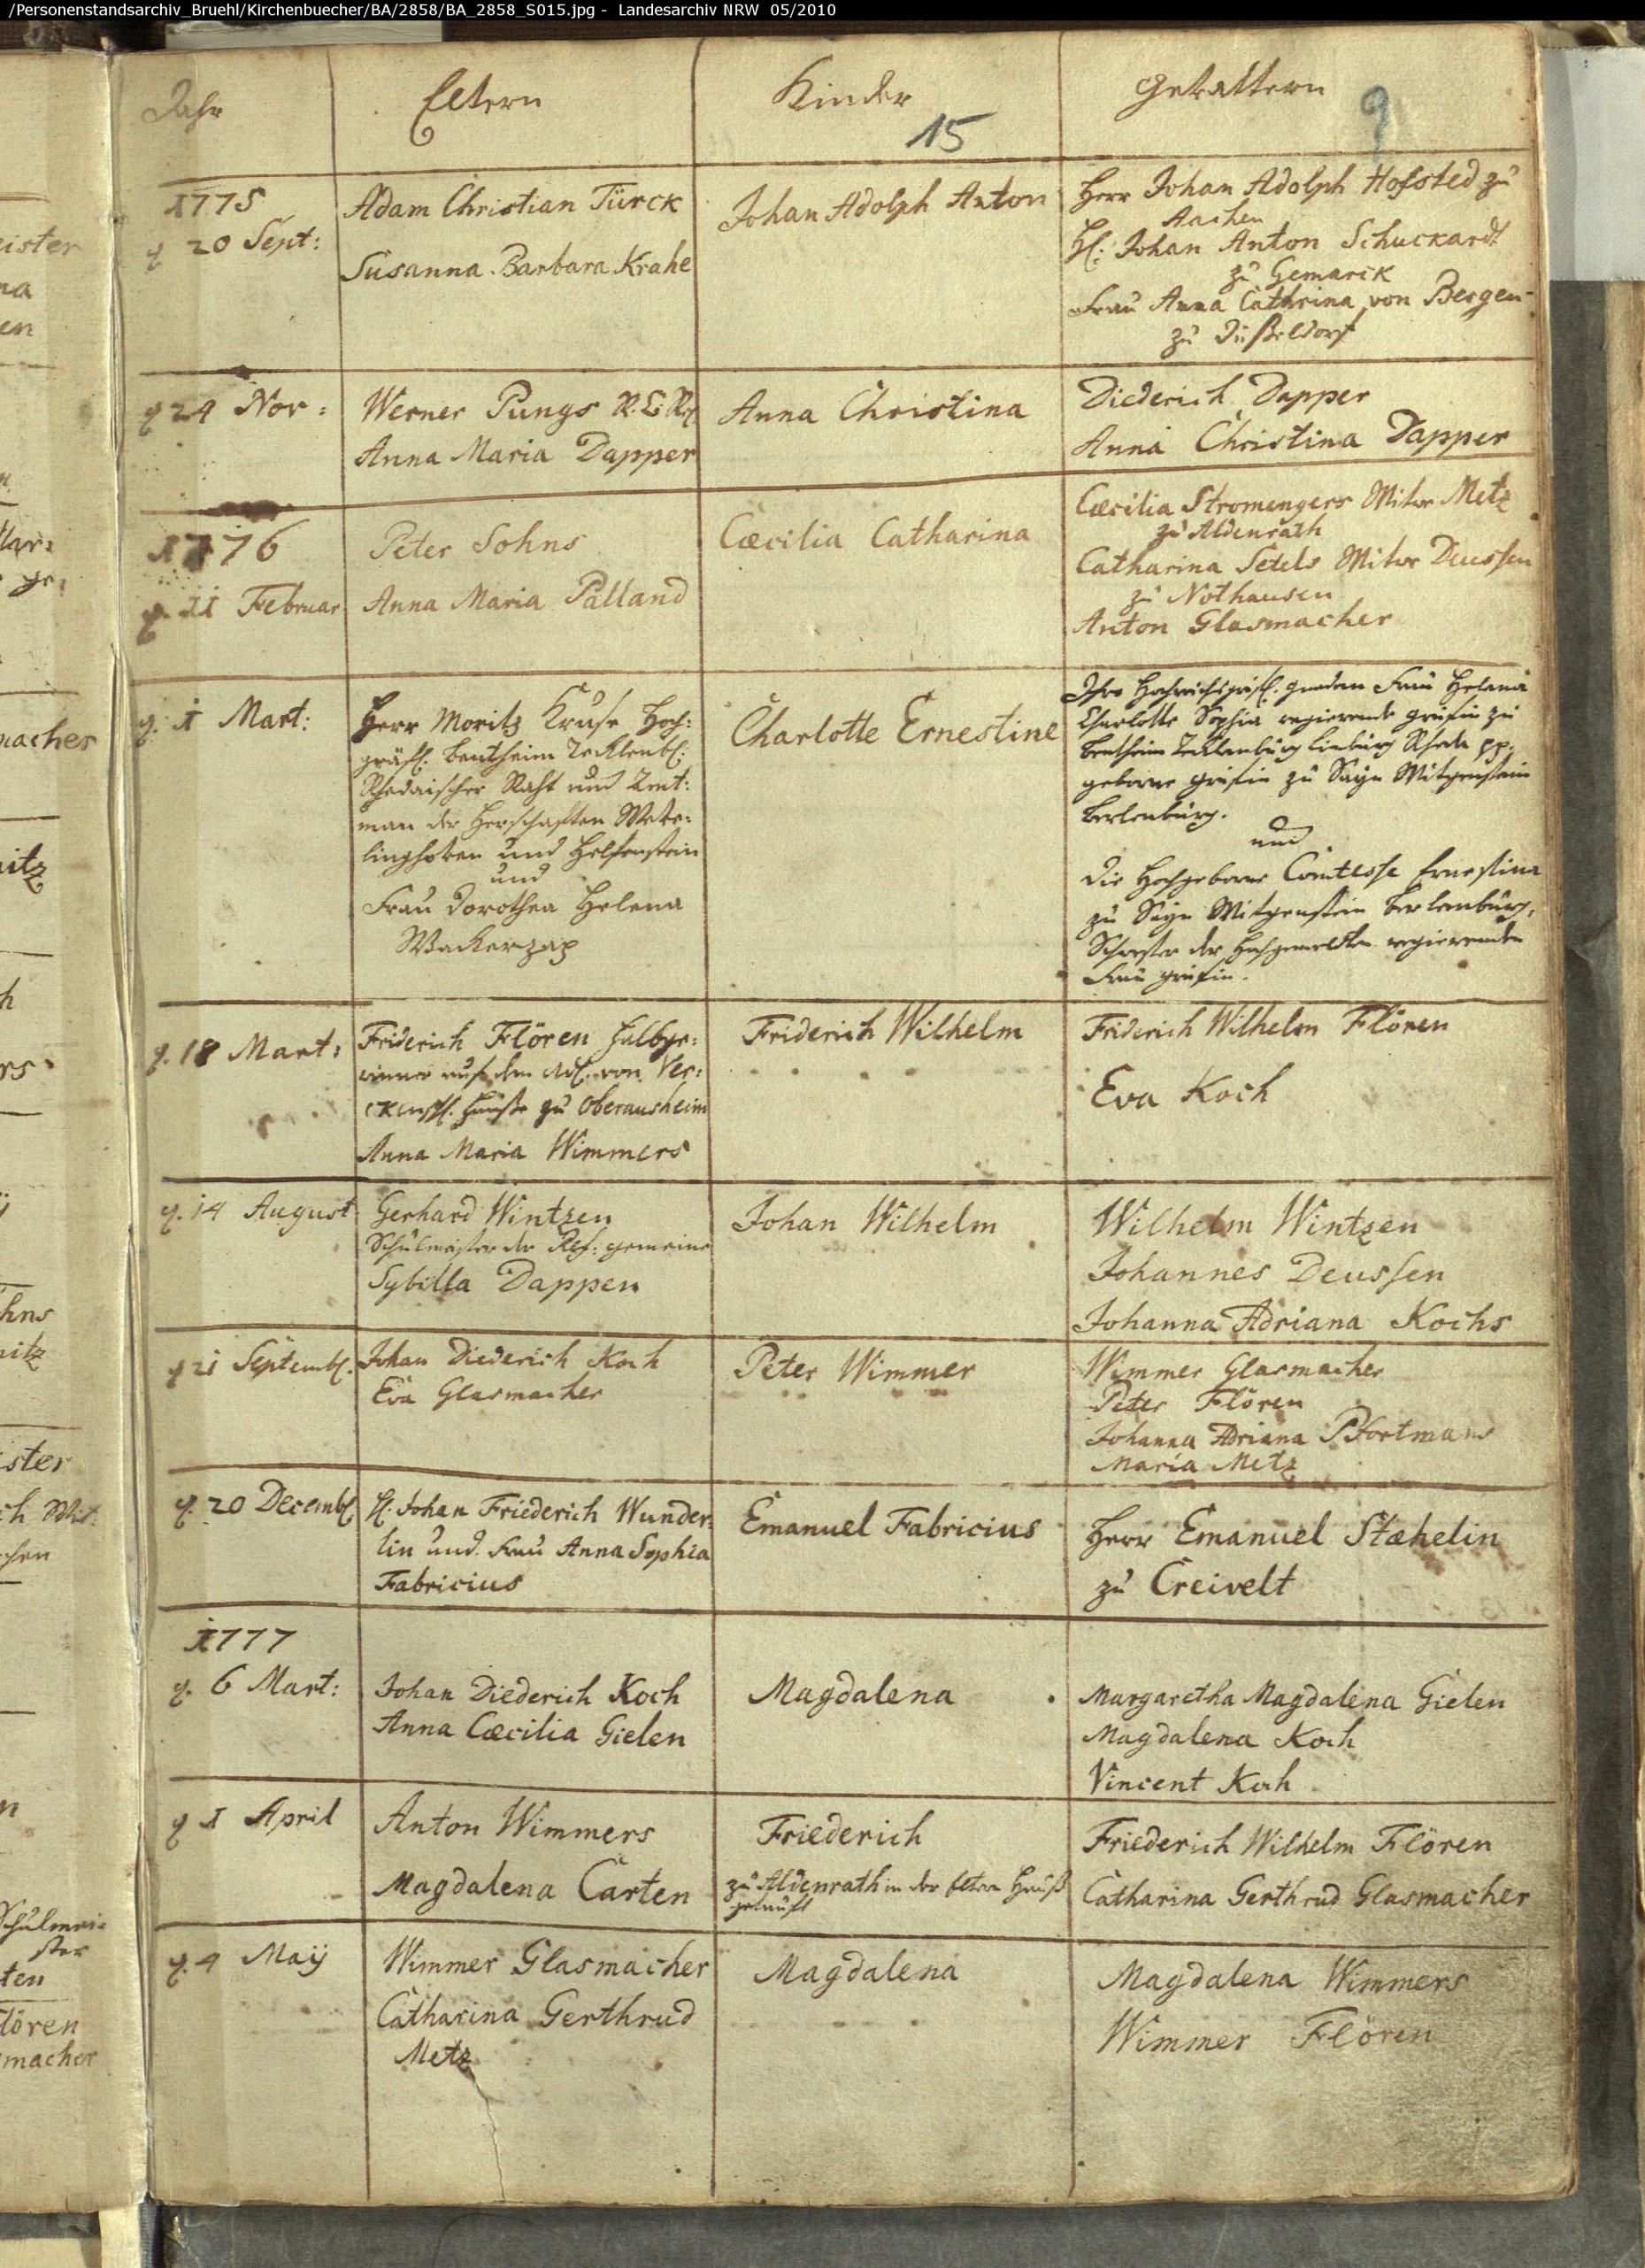 /Personenstandsarchiv_Bruehl/Kirchenbuecher/BA/2858/BA_2858_S015.jpg - Landesarchiv NRW 05/2010
Jahr
Eltern
Kinder
Gevattern
15
9
1775
20 Sept:
Adam Christian Türck
Susanna Barbara Krahe
Johan Adolph Anton
Herr Johan Adolph Hofsted zu
Aachen
H: Johan Anton Schuckardt
zu Gemarck
Frau Anna Cathrina von Bergen
zu Düßeldorf
24 Nov:
Werner Pungs
Anna Maria Dapper
Anna Christina
Diederich Dapper
Anna Christina Dapper
1776
11 Februar
Peter Sohns
Anna Maria Palland
Cæcilia Catharina
Cæcilia Stromengers Witwe Metz
zu Aldenrath
Catharina Setels Witwe Deussen
zu Nothausen
Anton Glasmacher
1 Mart:
Herr Moritz Kruse Hoch:
gräfl. Bentheim Tecklenbl:
Rhedaischer Raht und Amt:
man der Herschaften Weve:
linghoven und Helfenstein
und
Frau Dorothea Helena
Wackerzap
Charlotte Ernestine
Ihro Hochreichsgräfl. gnaden Frau Helena
Charlotte Sophia regierende gräfin zu
Bentheim Tecklenburg Limburg Rheda pp.
geborne gräfin zu Sayn Witgenstein
Berlenburg.
und
die Hochgeborne Comtesse Ernestina
zu Sayn Witgenstein Berlenburg,
Schwester der Hochgemelten regierenden
Frau gräfin.
18 Mart:
Friderich Flören Halbge:
winner auf dem Adl. von Ver:
ckensl. Hauße zu Oberausheim
Anna Maria Wimmers
Friderich Wilhelm
Friderich Wilhelm Flören
Eva Koch
14 August
Gerhard Wintzen
Schulmeister der Ref: gemeine
Sybilla Dappen
Johan Wilhelm
Wilhelm Wintzen
Johannes Deussen
Johanna Adriana Kochs
21 Septembl.
Johan Diederich Koch
Eva Glasmacher
Peter Wimmer
Wimmer Glasmacher
Peter Flören
Johanna Adriana Pfortmans
Maria Metz
20 Decembl.
H: Johan Friederich Wunder:
lin und Frau Anna Sophia
Fabricius
Emanuel Fabricius
Herr Emanuel Stæhelin
zu Creivelt
1777
6 Mart:
Johan Diederich Koch
Anna Cæcilia Gielen
Magdalena
Margaretha Magdalena Gielen
Magdalena Koch
Vincent Koch
1 April
Anton Wimmers
Magdalena Carten
Friederich
zu Aldenrath in der Eltern Hauß
getauft
Friederich Wilhelm Flören
Catharina Gerthrud Glasmacher
4 Maÿ
Wimmer Glasmacher
Catharina Gerthrud
Metz
Magdalena
Magdalena Wimmers
Wimmer Flören